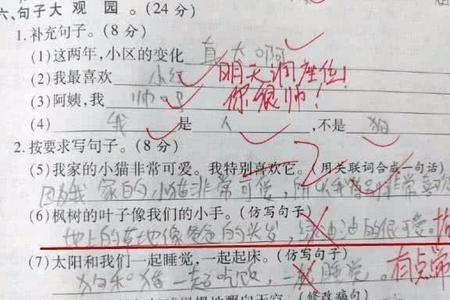 六、句子大观园。(24分)
1.补充句子。(8分)
(1)这两年,小区的变化 真大啊
(2)我最喜欢 小红 明天调座位!
(3)阿姨,我 帅吧 你很帅!
(4) 我 是 人 ,不是 狗
2.按要求写句子。(8分)
(5)我家的小猫非常可爱。我特别喜欢它。(用关联词合成一句话)
因为我家的小猫非常可爱,所以我非常喜欢
(6)枫树的叶子像我们的小手。(仿写句子)
地上的草地像爸爸的头发,绿油油的很可爱。
(7)太阳和我们一起睡觉,一起起床。(仿写句子)
狗和猫一起吃饭 一起睡觉。 有点常
(修改病句)